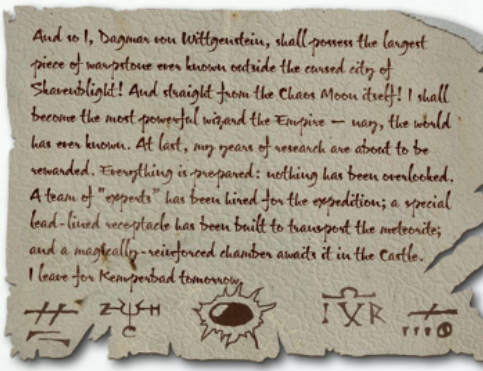 And so I, Dagmar von Wittgenstein, shall possess the largest
piece of warpstone ever known outside the cursed city of
Skavenblight! And straight from the Chaos Moon itself! I shall
become the most powerful wizard the Empire — nay, the world
has ever known. At last, my years of research are about to be
rewarded. Everything is prepared: nothing has been overlooked.
A team of "experts" has been hired for the expedition; a special
lead-lined receptacle has been built to transport the meteorite;
and a magically-reinforced chamber awaits it in the Castle.
I leave for Kemperbad tomorrow.